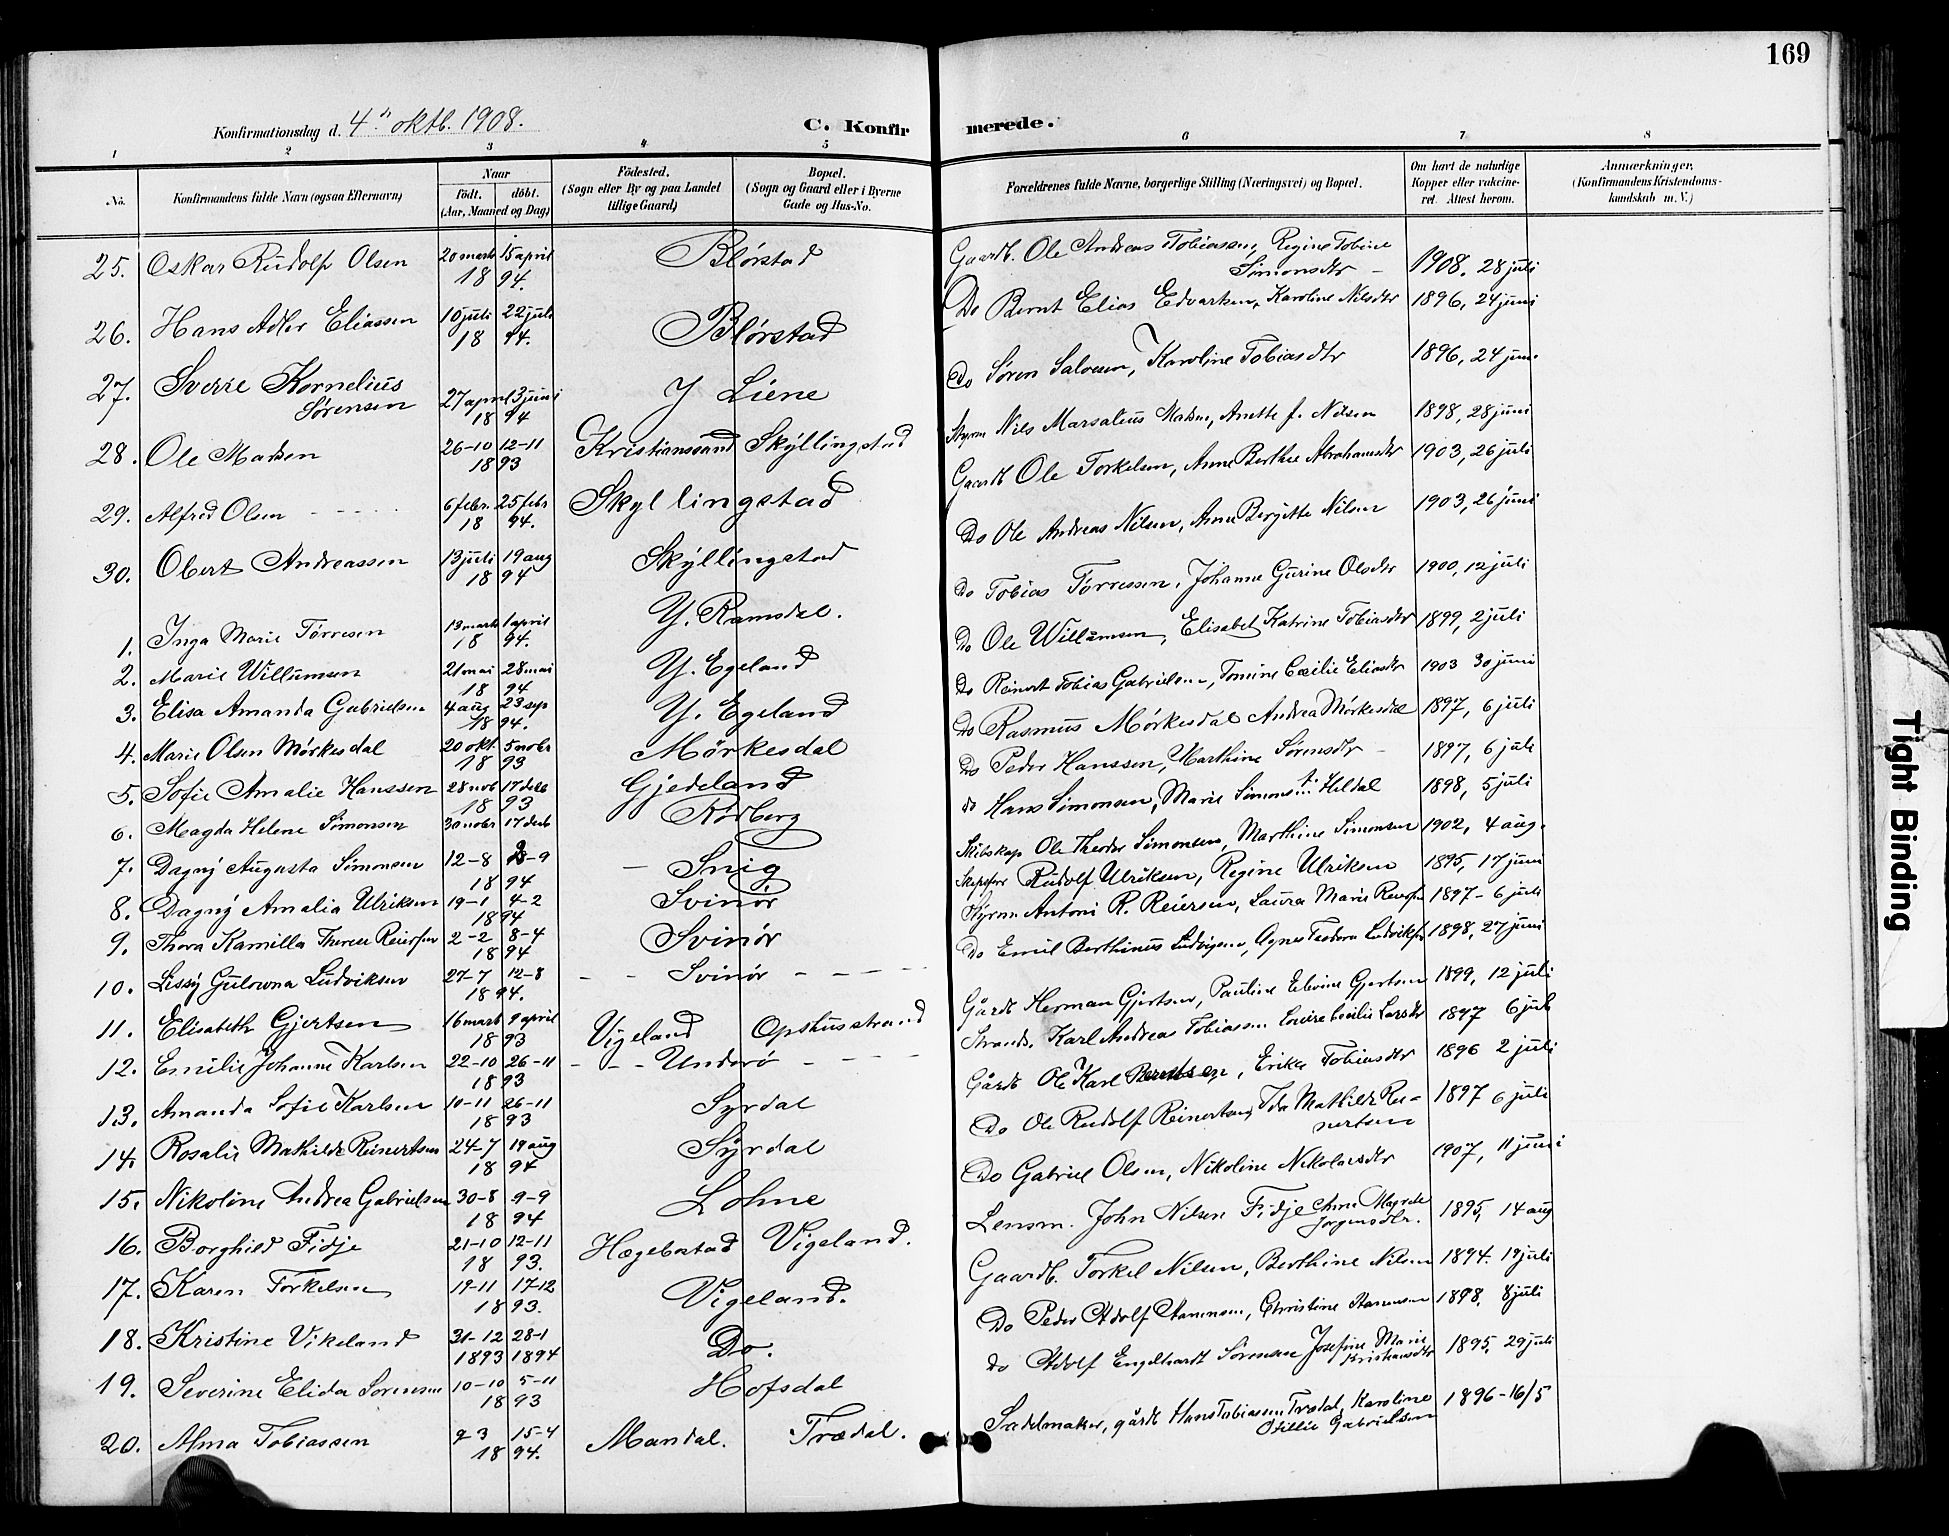 169
Konfirmationsdag d. 4de oktb. 1908.
C. Konfirmerede.
1 2 3 4 5 6 7 8
No. Konfirmandens fulde Navn (ogsaa Efternavn) Naar født, døbt. (Aar, Maaned og Dag) Fødested. (Sogn eller By og paa Landet tillige Gaard) Bopæl. (Sogn og Gaard eller i Byerne Gade og Hus-No. Forældrenes fulde Navne, borgerlige Stilling (Næringsvei) og Bopæl. Om havt de naturlige Kopper eller vaccineret. Attest herom. Anmærkninger, (Konfirmandens Kristendomskundskab m. V.)
25. Oskar Rudolf Olsen 20 marts 15 april 1894. Blørstad Gaardb. Ole Andreas Tobiassen, Regine Tobine Simonsdtr - 1908. 28 juli
26. Hans Adler Eliassen 10 juli 22 juli 1894. Blørstad Do Bernt Elias Edvartsen, Karoline Nilsdtr 1896, 24 juni
27. Sverre Kornelius Sørensen 27 april 3 juni 1894 Y Liene Do Søren Salvesen, Karoline Tobiasdtr 1896, 24 juni
28. Ole Madsen 26-10 12-11 1893 Kristianssand Skyllingstad Styrm Nils Marsalius Madsen, Anette J. Nilsen 1898, 28 juni
29. Alfred Olsen 6 febr. 25 febr 1894. Skyllingstad Gaardb Ole Torkelsen, Anne Berthe Abrahamsdtr 1903, 26 juli
30. Obert Andreassen 13 juli 19 aug 1894 Skyllingstad Do Ole Andreas Nilsen, Anne Bergitte Nilsen 1903, 26 juni
1. Inga Marie Tørresen 13 marts 1 april 1894. Y. Ramsdal. Do Tobias Tørressen, Johanne Gurine Olsdtr 1900, 12 juli
2. Marie Willumsen 21 mai 28 mai 1894 Y. Egeland Do Ole Willumsen, Elisabet Katrine Tobiasdtr 1899, 2 juli
3. Elisa Amanda Gabrielsen 4 aug 23 sep 1894. Y. Egeland Do Reinert Tobias Gabrielsen, Tomine Cecilie Eliasdtr 1903 30 juni
4. Marie Olsen Mørkesdal 20 okt. 5 nobr 1893 Mørkesdal Do Rasmus Mørkesdal Andrea Mørkesdal 1897, 6 juli
5. Sofie Amalie Hanssen 28 nob 17 deb 1893 Gjedeland Do Peder Hanssen, Marthine Sørensdtr - 1897, 6 juli
6. Magda Helene Simonsen 30 nobr 17 deb Rødberg do Hans Simonsen, Marie Simons f. Heldal 1898, 5 juli
7. Dagny Augusta Simonsen 12-8 -9 1894 - Snig Skibskap Ole Theodor Simonsen, Marthine Simonsen 1902, 4 aug.
8. Dagny Amalia Ulriksen 19-1 4-2 1894 Svinør Skipsfør Rudolf Ulriksen, Regine Ulriksen 1895, 17 juni
9. Thora Kamilla Therese Reiersen 2-2 8-4 1894 Svinør Styrm Antoni R. Reiersen, Laura Marie Reiersen 1897 - 6 juli
10. Lissy Gulowna Ludviksen 27-7 12-8 1894. - - Svinør - - - - Do Emil Berthinus Ludvigsen, Agnes Teodora Ludviksen 1898, 27 juni
11. Elisabeth Gjertsen 16 marts 9 april 1893 Vigeland Opshusstrand Gårdb Herman Gjertsen, Pauline Elevine Gjertsen 1899, 12 juli
12. Emilie Johanne Karlsen 22-10 26-11 1893 - - - Underø - - - - Strands. Karl Andreas Tobiassen Lovise Cecilie Larsdtr 1897 6 juli
13. Amanda Sofie Karlsen 10-11 26-11 1893 Syrdal Gårdb Ole Karl Berntsen, Erikke Tobiasdtr 1896 2 juli
14. Rosalie Mathilde Reinertsen 24-7 19 aug 1894 Syrdal Do Ole Rudolf Reinertsen, Ida Mathilde Reinertsen 1897 6 juli
15. Nikoline Andrea Gabrielsen 30-8 9-9 1894 Lohne Do Gabriel Olsen, Nikoline Nikolaisdtr 1907, 11 juni
16. Borghild Fidje 21-10 12-11 1893. Hægebostad Vigeland. Lensm. John Nilsen Fidje Anne Magrete Jørgensdtr. 1895, 14 aug
17. Karen Torkelsen 19-11 17-12 1893. Vigeland. Gaardb. Torkel Nilsen, Berthine Nilsen 1894. 19 juli
18. Kristine Vikeland 31-12 28-1 1893 1894 Do. Do Peder Adolf Stamnsen, Christine Stamnsen 1898, 8 juli
19. Severine Elida Sorensen 10-10 5-11 1893 Hofsdal do Adolf Engelhardt Sorensen Josefine Marie Kristiansdtr 1895, 29 juli
20. Alma Tobiassen 9-3 15-4 1894. Mandal. Trædal. Sadelmaker, gårdb Hans Tobiassen Trædal, Karoline Otillie Gabrielsen 1896-16/5
Tight Binding